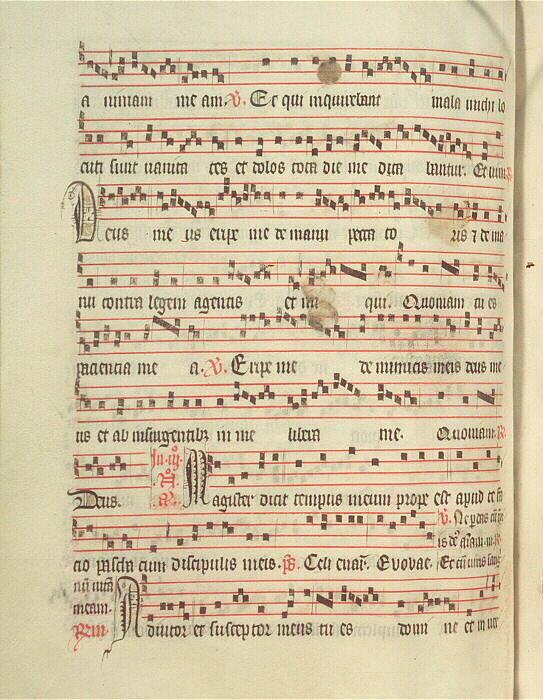 a nimam me am. V. Et qui inquirebant mala michi lo
cuti sunt vanita tes et dolos tota die me dita bantur. Et vim
Deus me us eripe me de manu pecca to ris ⁊ de ma
nu contra legem agentis et ini qui. Quoniam tu es
paciencia me a. V. Eripe me de inimicis meis deus me
us et ab insurgentibꝫ in me libera me. Quoniam. R.
Deus. In .iij. A. Magister dicit tempus meum prope est apud te fa
V. Ne perdas cū
cio pascha cum discipulis meis. ps. Celi enar. Evovae. Et cū viris
aīam
meam.
Adiutor et susceptor meus tu es domi ne et in ver